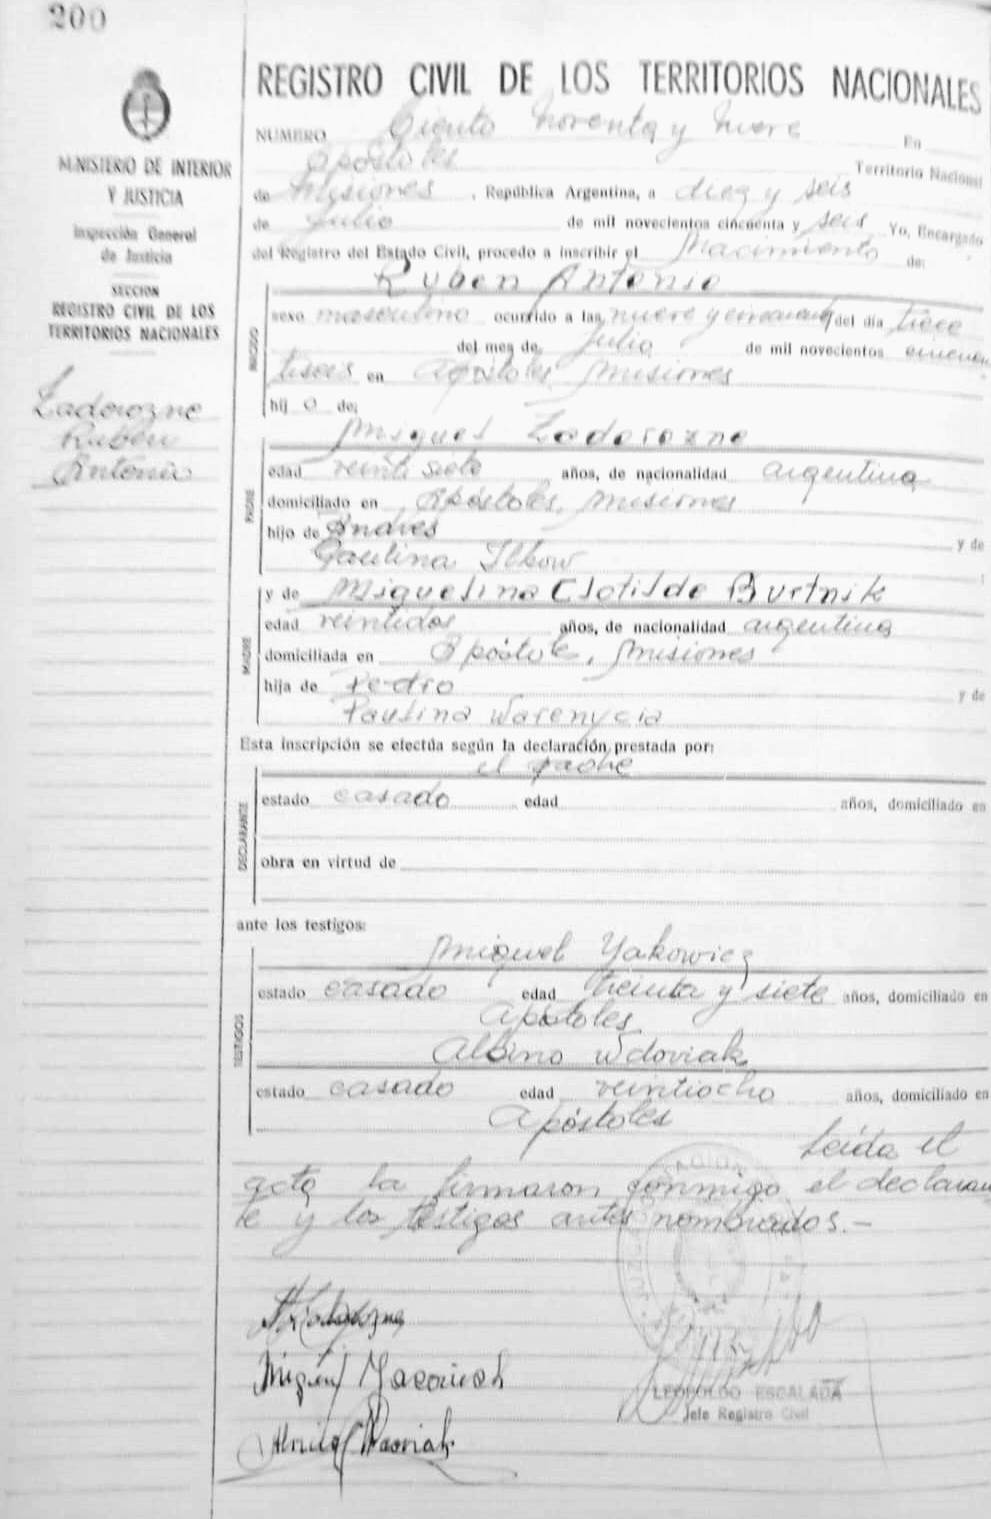 200
REGISTRO CIVIL DE LOS TERRITORIOS NACIONALES
MINISTERIO DE INTERIOR
Y JUSTICIA
Inspección General
de Justicia
SECCION
REGISTRO CIVIL DE LOS
TERRITORIOS NACIONALES
Zadorozne
Ruben
Antonio
NUMERO Ciento Noventa y Nueve En
Apóstoles Territorio Nacional
de Misiones, República Argentina, a diez y seis
de Julio de mil novecientos cincuenta y seis Yo, Encargado
del Registro del Estado Civil, procedo a inscribir el Nacimiento de:
Ruben Antonio
sexo masculino ocurrido a las nueve y cincuenta del día trece
del mes de Julio de mil novecientos cincuen
tiseis en Apóstoles, Misiones
hij o de:
PADRE
Miguel Zadorozne
edad veinti siete años, de nacionalidad argentina
domiciliado en Apóstoles, Misiones
hijo de Andrés y de
Paulina Ilkow
MADRE
y de Miguelina Clotilde Burtnik
edad veintidos años, de nacionalidad argentina
domiciliada en Apóstoles, Misiones
hija de Pedro y de
Paulina Warenycia
Esta inscripción se efectúa según la declaración prestada por:
el padre
DECLARANTE
estado casado edad años, domiciliado en
obra en virtud de
ante los testigos:
TESTIGOS
Miguel Yakowicz
estado casado edad treinta y siete años, domiciliado en
Apóstoles
Albino Wdoviak
estado casado edad veintiocho años, domiciliado en
Apóstoles
Leída el
acta la firmaron conmigo el declaran
te y los testigos antes nombrados.-
LEOPOLDO ESCALADA
Jefe Registro Civil